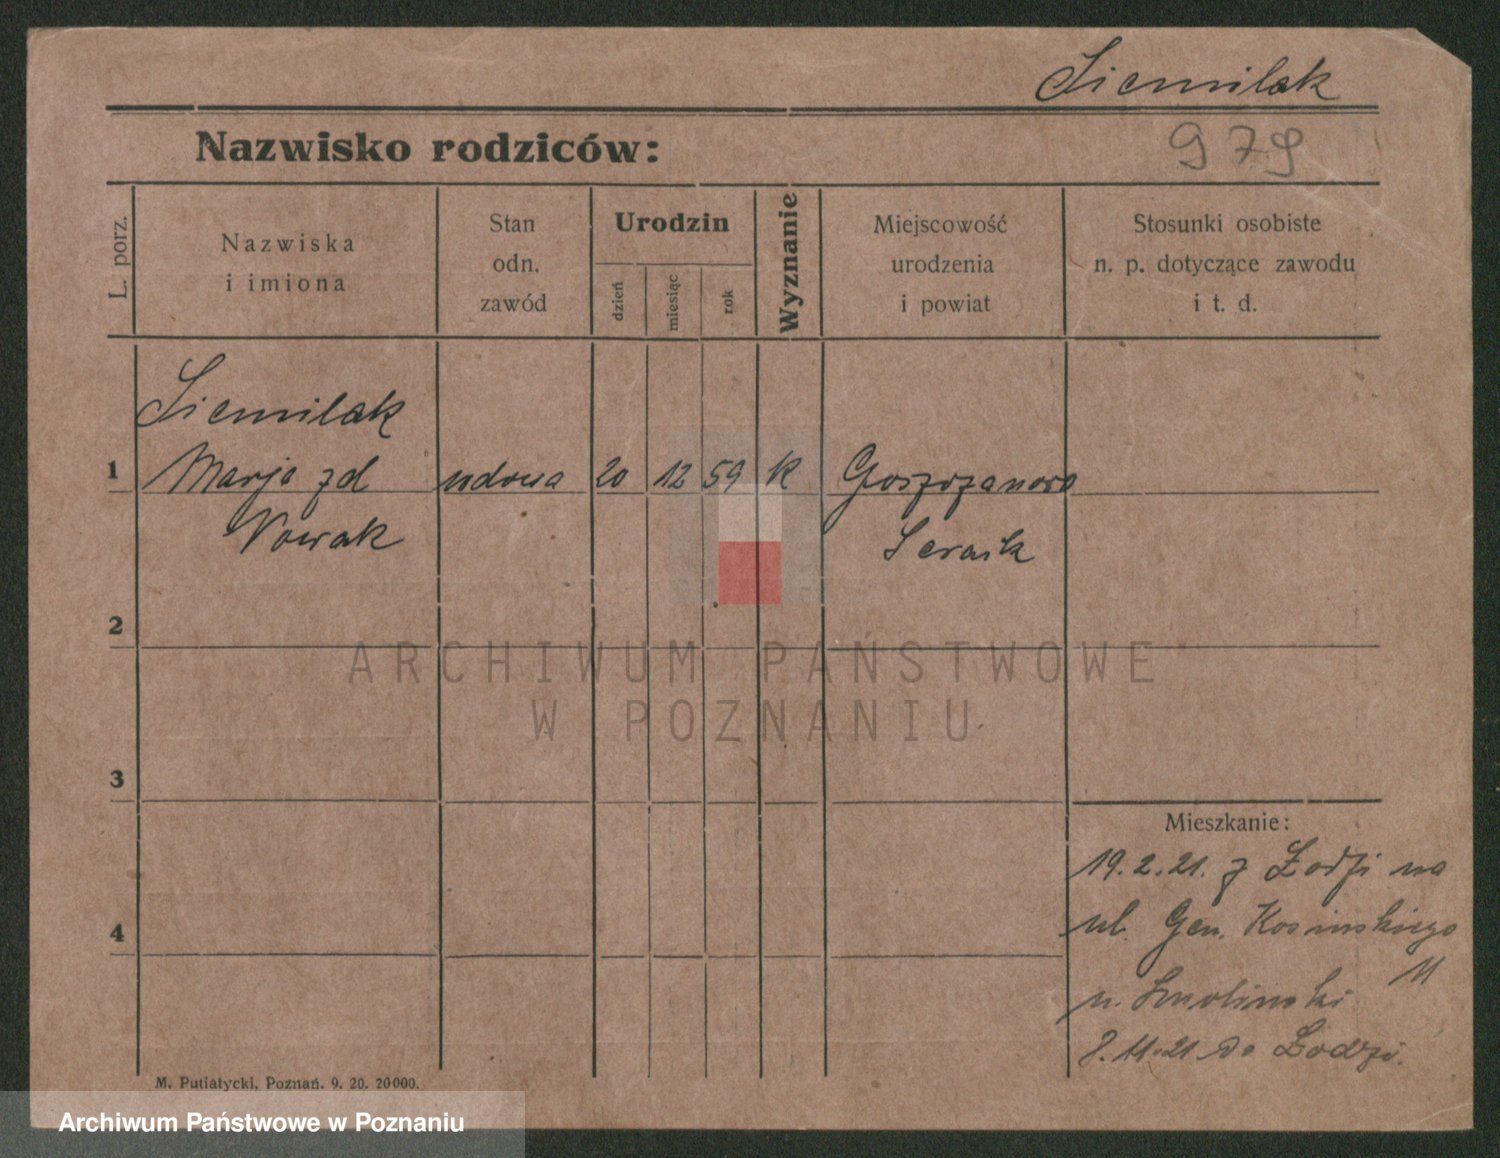 Siemilak
979
Nazwisko rodziców:
L. porz.
Nazwiska
i imiona
Stan
odn.
zawód
Urodzin
dzień
miesiąc
rok
Wyznanie
Miejscowość
urodzenia
i powiat
Stosunki osobiste
n. p. dotyczące zawodu
i t. d.
Siemilak
1 Marja zd udowa 20 12 59 k Goszczanowo
Nowak
2
ARCHIWUM PAŃSTWOWE
W POZNANIU
3
Mieszkanie:
19.2.21. z Łodzi na
ul. Gen. Kosinskiego
4
11
u. Smolinski
8.11.21 do Łodzi.
M. Putiatycki, Poznań. 9. 20. 20000.
Archiwum Państwowe w Poznaniu